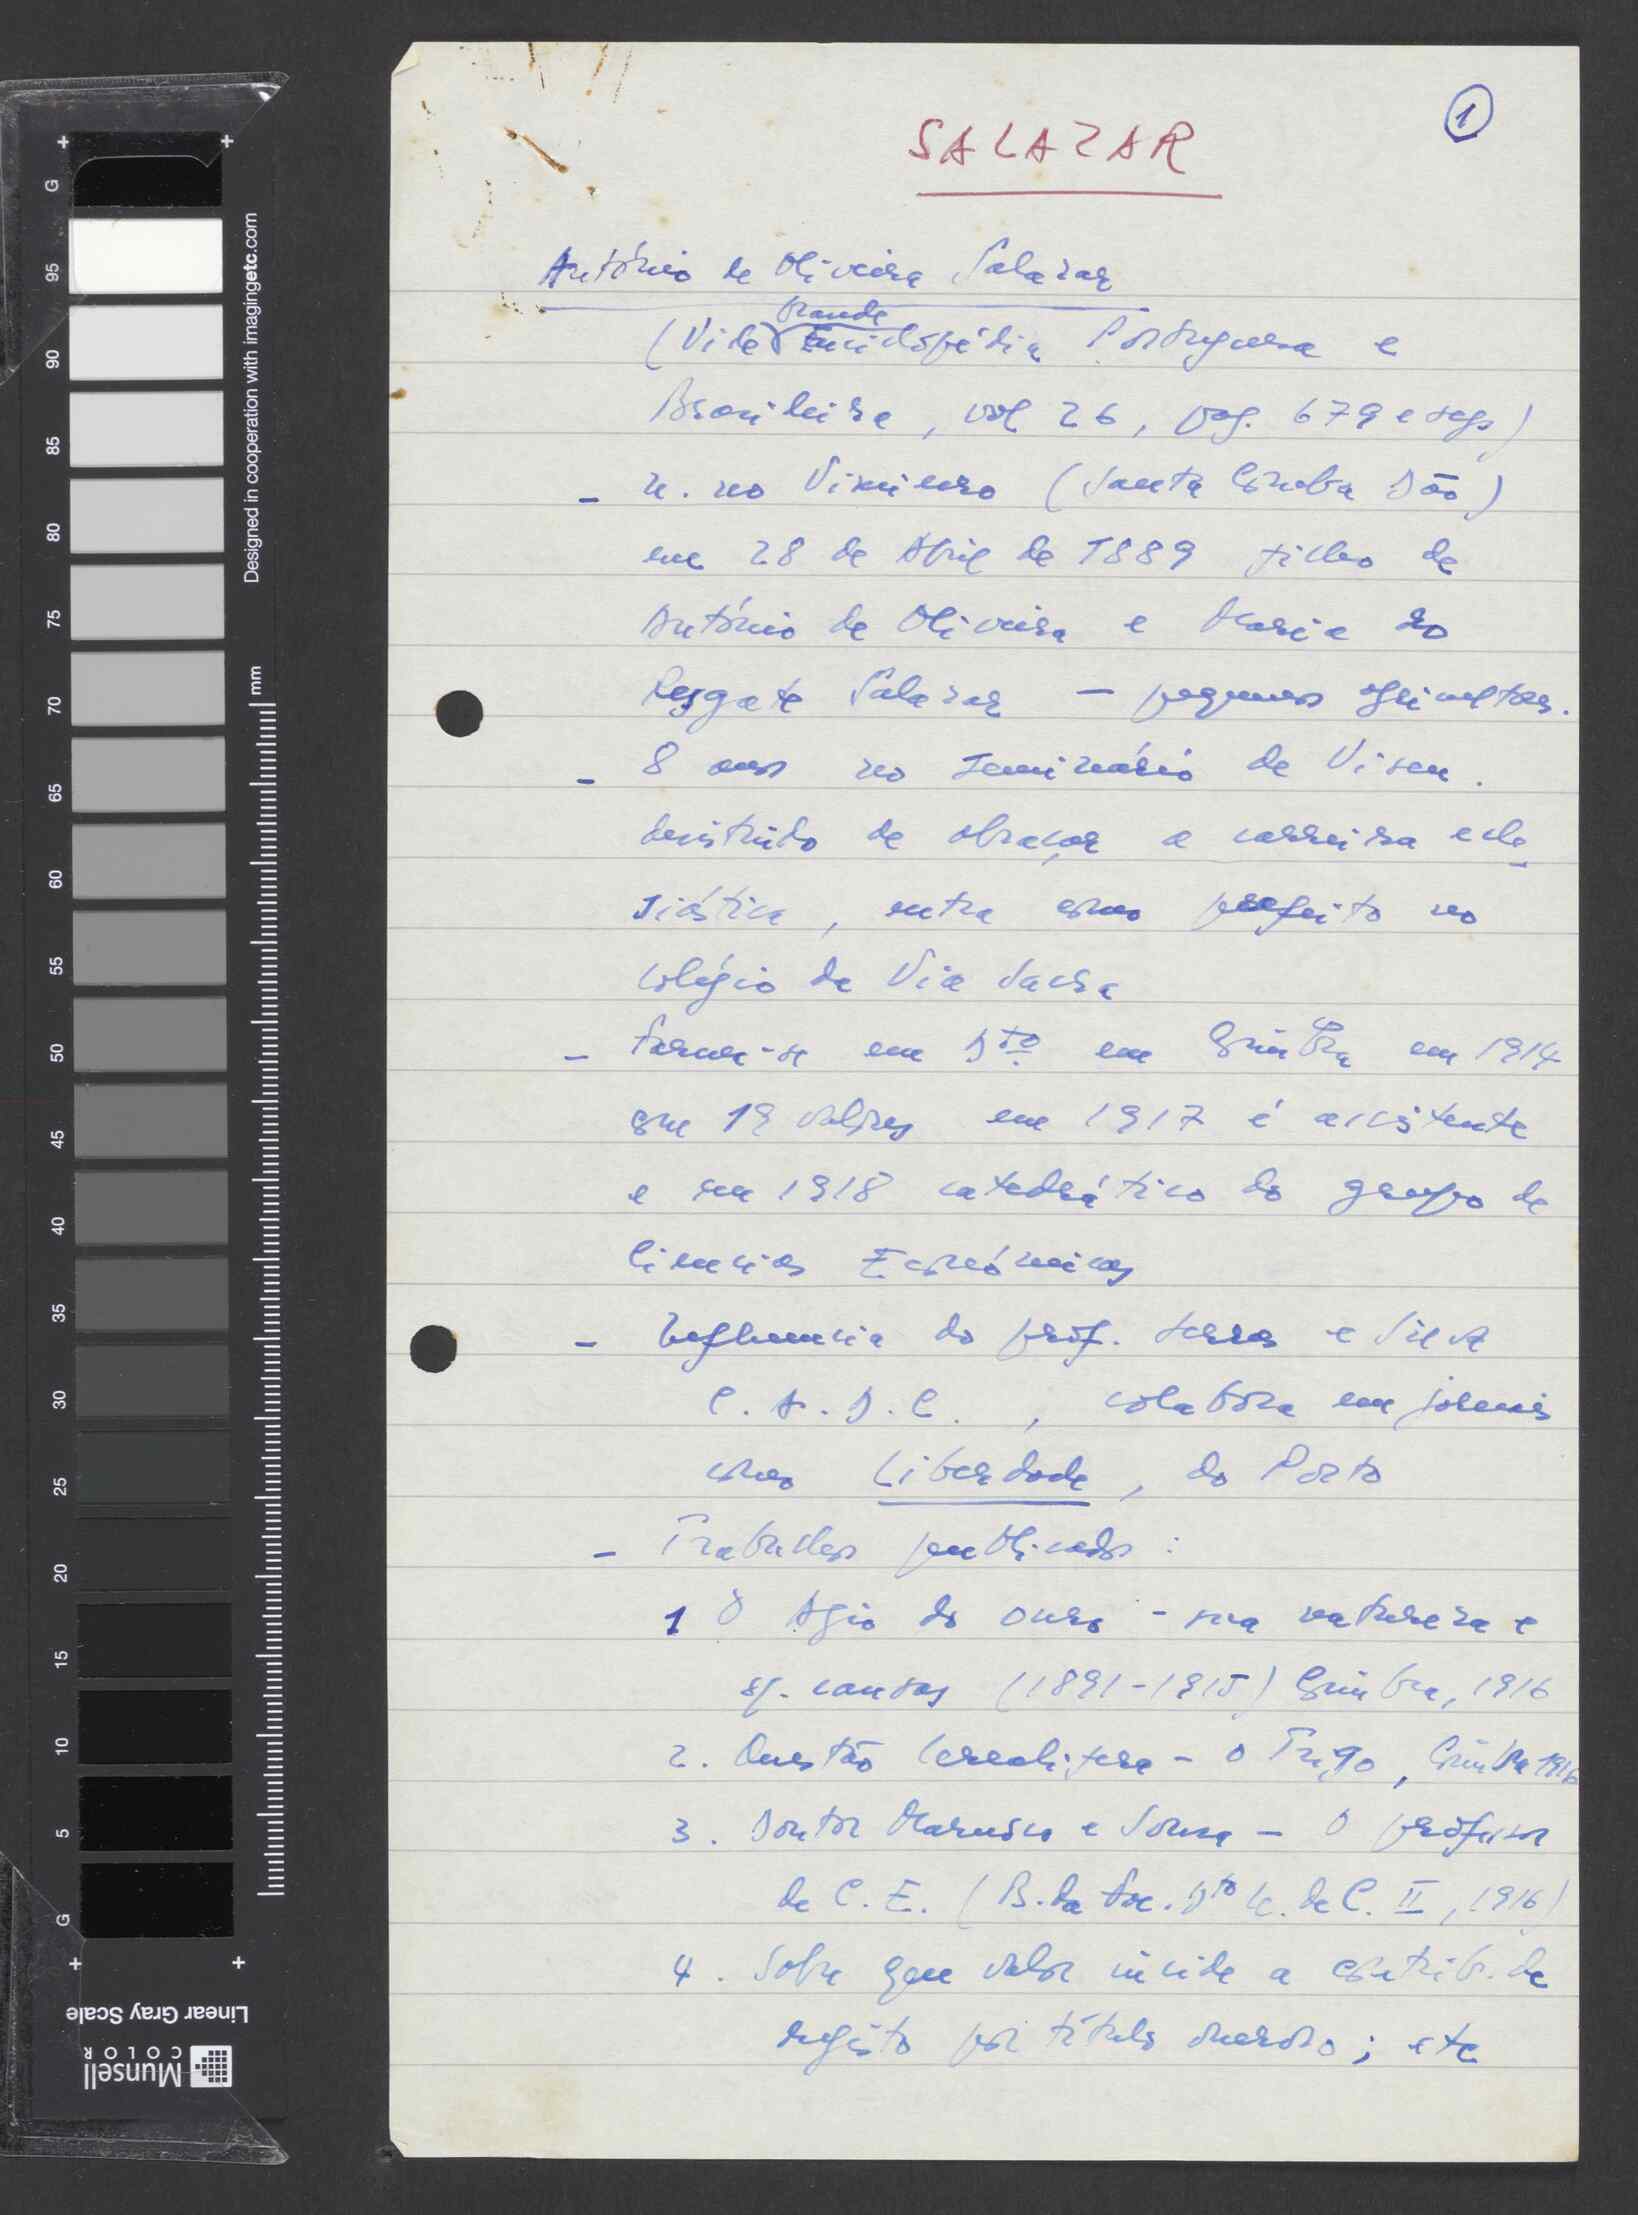 1
SALAZAR
António de Oliveira Salazar
(Vide Grande Enciclopédia Portuguesa e
Brasileira, vol 26, pag. 679 e segs)
- n. no Vimieiro (Santa Comba Dão)
em 28 de Abril de 1889 filho de
António de Oliveira e Maria do
Resgate Salazar — pequenos agricultores.
- 8 anos no seminário de Viseu.
desistindo de abraçar a carreira ecle-
siástica, entra como prefeito no
colégio da Via Sacra
- forma-se em Dto em Coimbra em 1914
com 19 valores em 1917 é assistente
e em 1918 catedrático do grupo de
Ciencias Económicas
- Influencia do prof. Serras e Silva
C.A.D.C., colabora em jornais
como Liberdade, do Porto
- Trabalhos publicados:
1 O Agio do ouro - sua natureza e
s/. causas (1891-1915) Coimbra, 1916
2. Questão Cerealifera - o Trigo, Coimbra 1916
3. Doutor Marnoco e Sousa - O professor
de C.E. (B. da Fac. Dto U. de C. II, 1916)
4. Sobre que valor incide a contrib. de
registo por título oneroso; etc
Designed in cooperation with imagingetc.com
mm
G 95 90 85 80 75 70 65 60 55 50 45 40 35 30 25 20 15 10 5 G
Linear Gray Scale
Munsell
COLOR